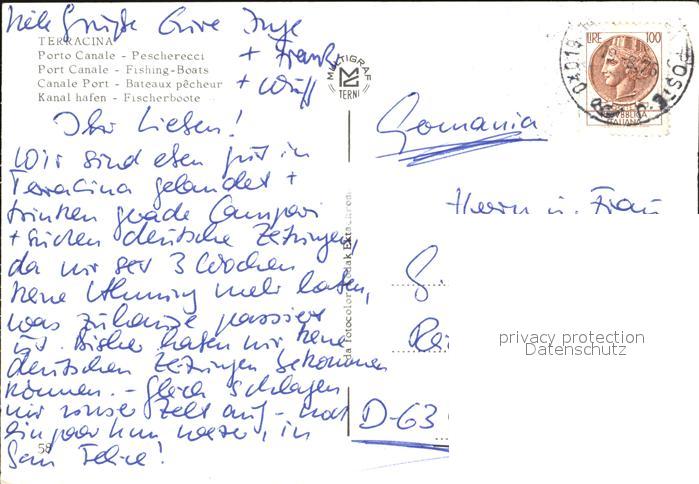 Viele Grüße Eure Inge
+ Frank
+ Wuff
TERRACINA
Porto Canale - Pescherecci
Port Canale - Fishing-Boats
Canale Port - Bateaux pêcheur
Kanal hafen - Fischerboote
MULTIGRAF
TERNI
LIRE 100
REPUBBLICA
ITALIANA
POSTE
Ihr Lieben!
Wir sind eben gut in
Terracina gelandet +
trinken grade Campari
+ suchen deutsche Zeitungen,
da wir seit 3 Wochen
keine Ahnung mehr haben,
was zuhause passiert
ist. Bisher haben wir keine
deutschen Zeitungen bekommen
können. - Gleich schlagen
wir unser Zelt auf - noch
ein paar km weiter, in
San Felice!
58
da fotocolor Kodak Ektachrome
Germania
Herrn u. Frau
G.
D-63
privacy protection
Datenschutz